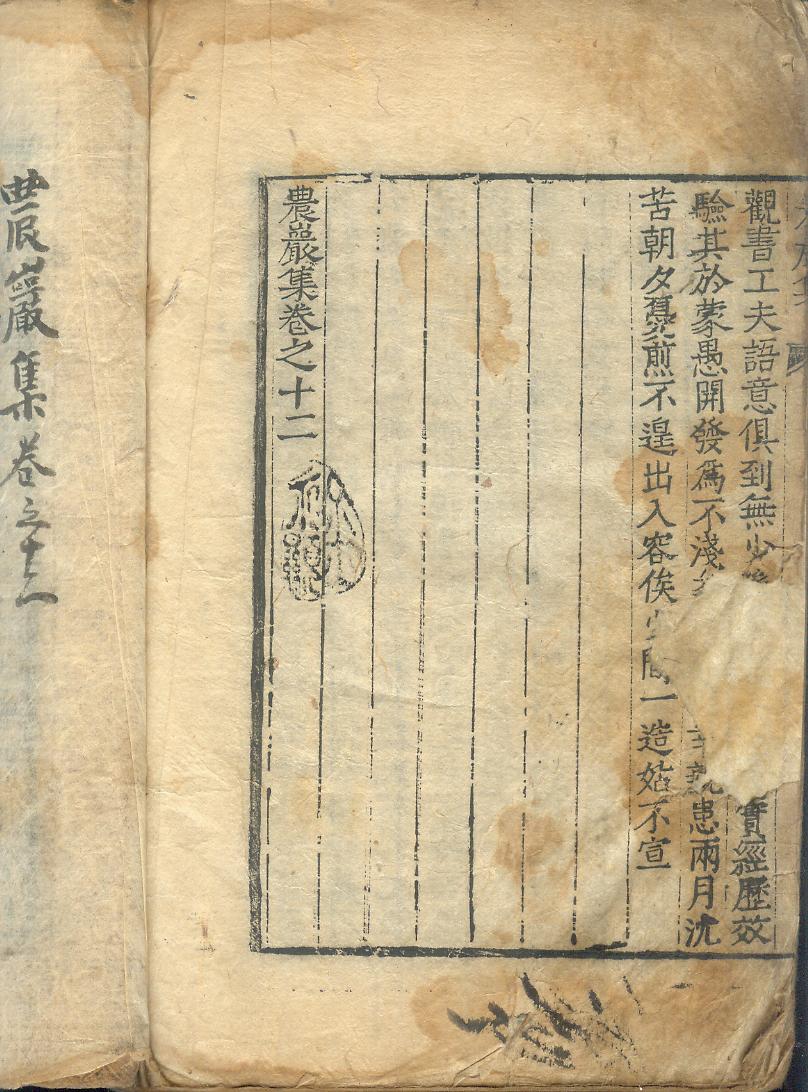 觀書工夫語意俱到無少 實經歷效
驗其於蒙愚開發爲不淺 患兩月沈
苦朝夕憂煎不遑出入容俟少間一造姑不宣
農巖集卷之十二
農巖集卷之十二